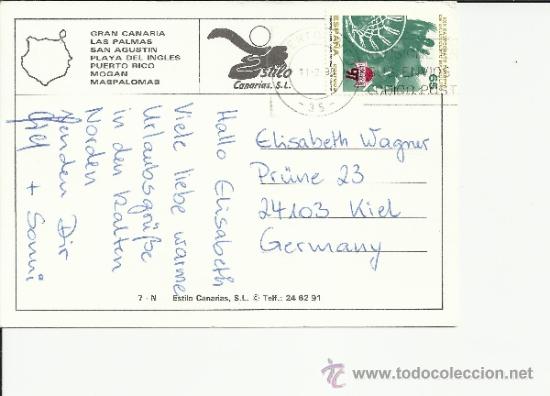 GRAN CANARIA
LAS PALMAS
SAN AGUSTIN
PLAYA DEL INGLES
PUERTO RICO
MOGAN
MASPALOMAS
Estilo
Canarias, S.L.
ESPAÑA
65
11-2-9
-35-
ENVIO
POST
Hallo Elisabeth
Viele liebe warme
Urlaubsgrüße
in den kalten
Norden
senden Dir
+ Sonni
Elisabeth Wagner
Prüne 23
24103 Kiel
Germany
7 - N Estilo Canarias, S.L. © Telf.: 24 62 91
© todocoleccion.net
www.todocoleccion.net